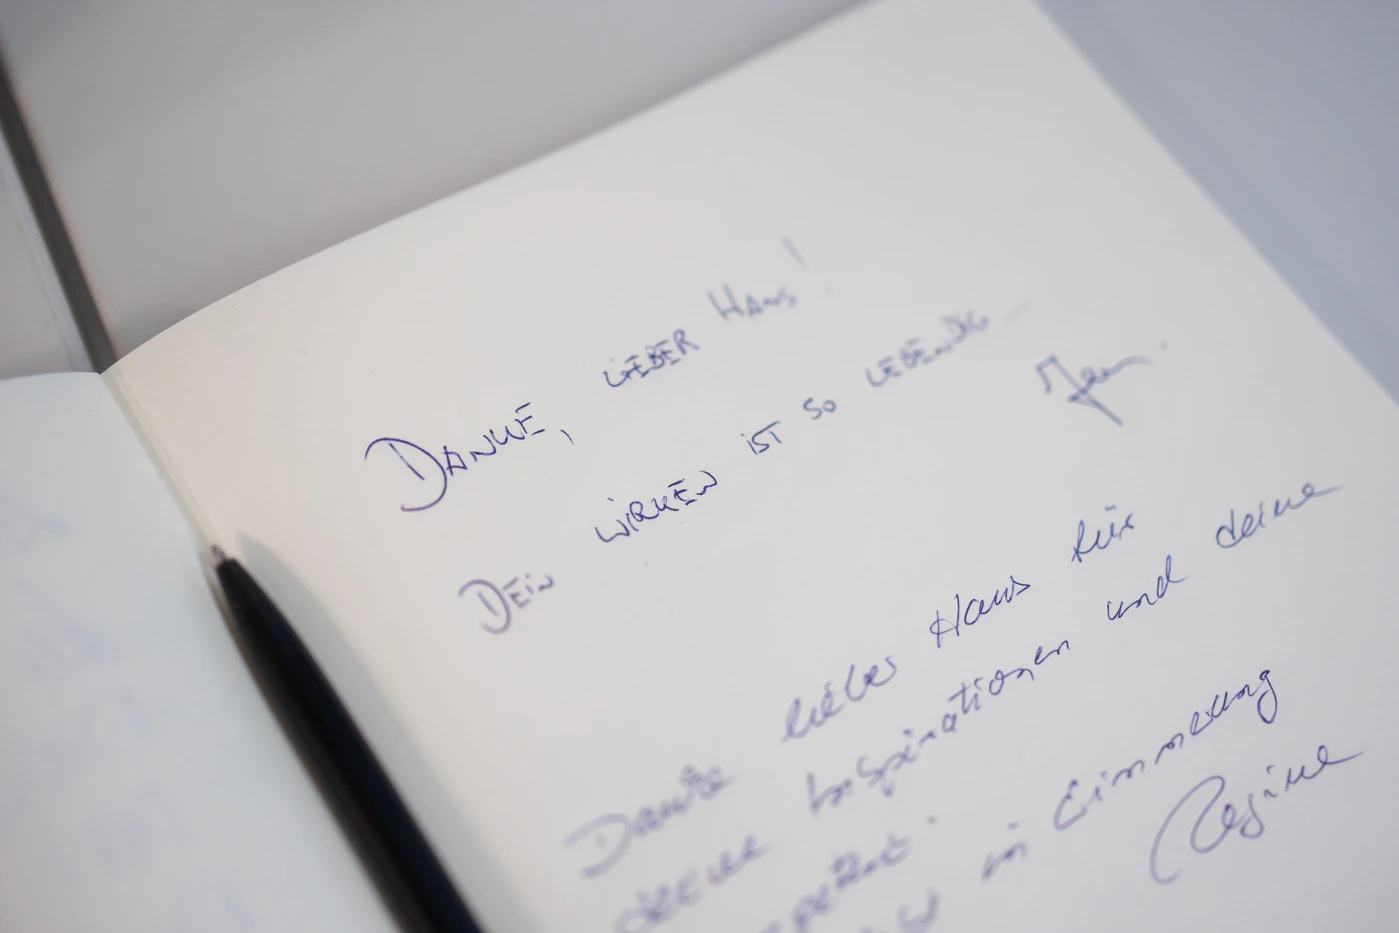 DANKE, LIEBER HANS!
DEIN WIRKEN IST SO LEBENDIG...
Danke lieber Hans für
deine Inspirationen und deine
in Erinnerung
Regine